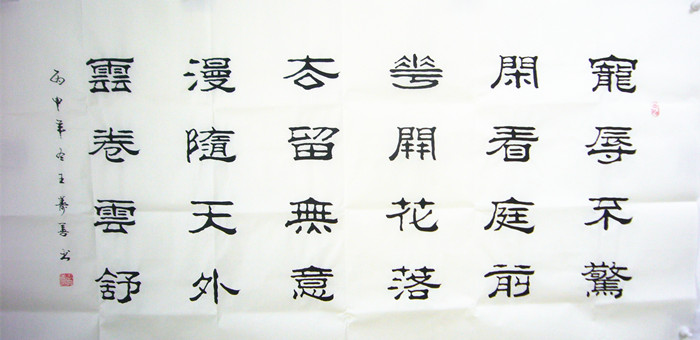 寵辱不驚
閑看庭前
華開花落
去留無意
漫隨天外
雲卷雲舒
丙申年冬王善书